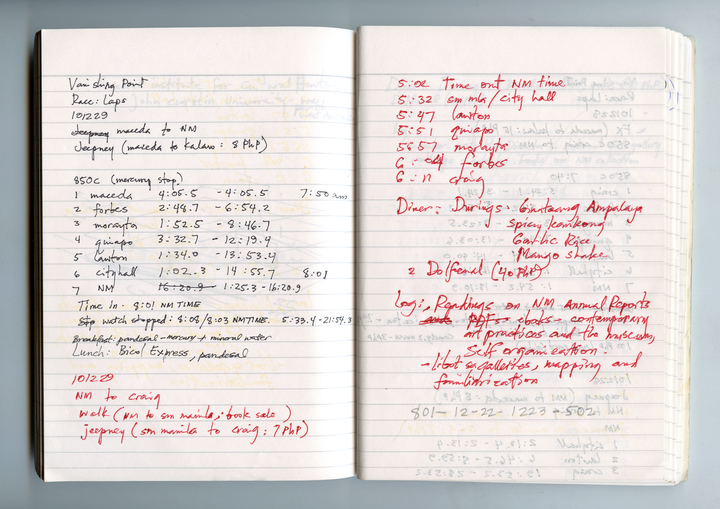 Vanishing Point
Race: Laps
101229
Jeepney maceda to NM
Jeepney (maceda to kalaw: 8 PhP)
850C (mercury stop)
1 maceda 4:05.5 - 4:05.5 7:50 am
2 forbes 2:48.7 - 6:54.2
3 morayta 1:52.5 - 8:46.7
4 quiapo 3:32.7 - 12:19.4
5 lawton 1:34.0 - 13:53.4
6 cityhall 1:02.3 - 14:55.7 8:01
7 NM 16:20.9 1:25.3-16:20.9
Time In: 8:01 NM TIME
Stop watch stopped: 8:08/8:03 NM TIME. 5:33.4-21:54.3
Breakfast: pandesal-mercury + mineral water
Lunch: Bicol Express, pandesal
101229
NM to craig
walk (NM to sm manila; book sale)
jeepney (sm manila to craig: 7 PhP)
5:02 Time out NM time
5:32 sm mla/city hall
5:47 lawton
5:51 quiapo
5657 morayta
6:04 forbes
6:11 craig
Diner: Durings: Ginataang Ampalaya
spicy kankong
Garlic Rice
Mango shake
2 Dolfenal (40 PhP)
Log:, Readings on NM Annual Reports
PDFs - ebooks - contemporary
art practices and the museum,
Self organization.
- libot sa galleries, mapping and
familiarization
801-12-22-1223-502